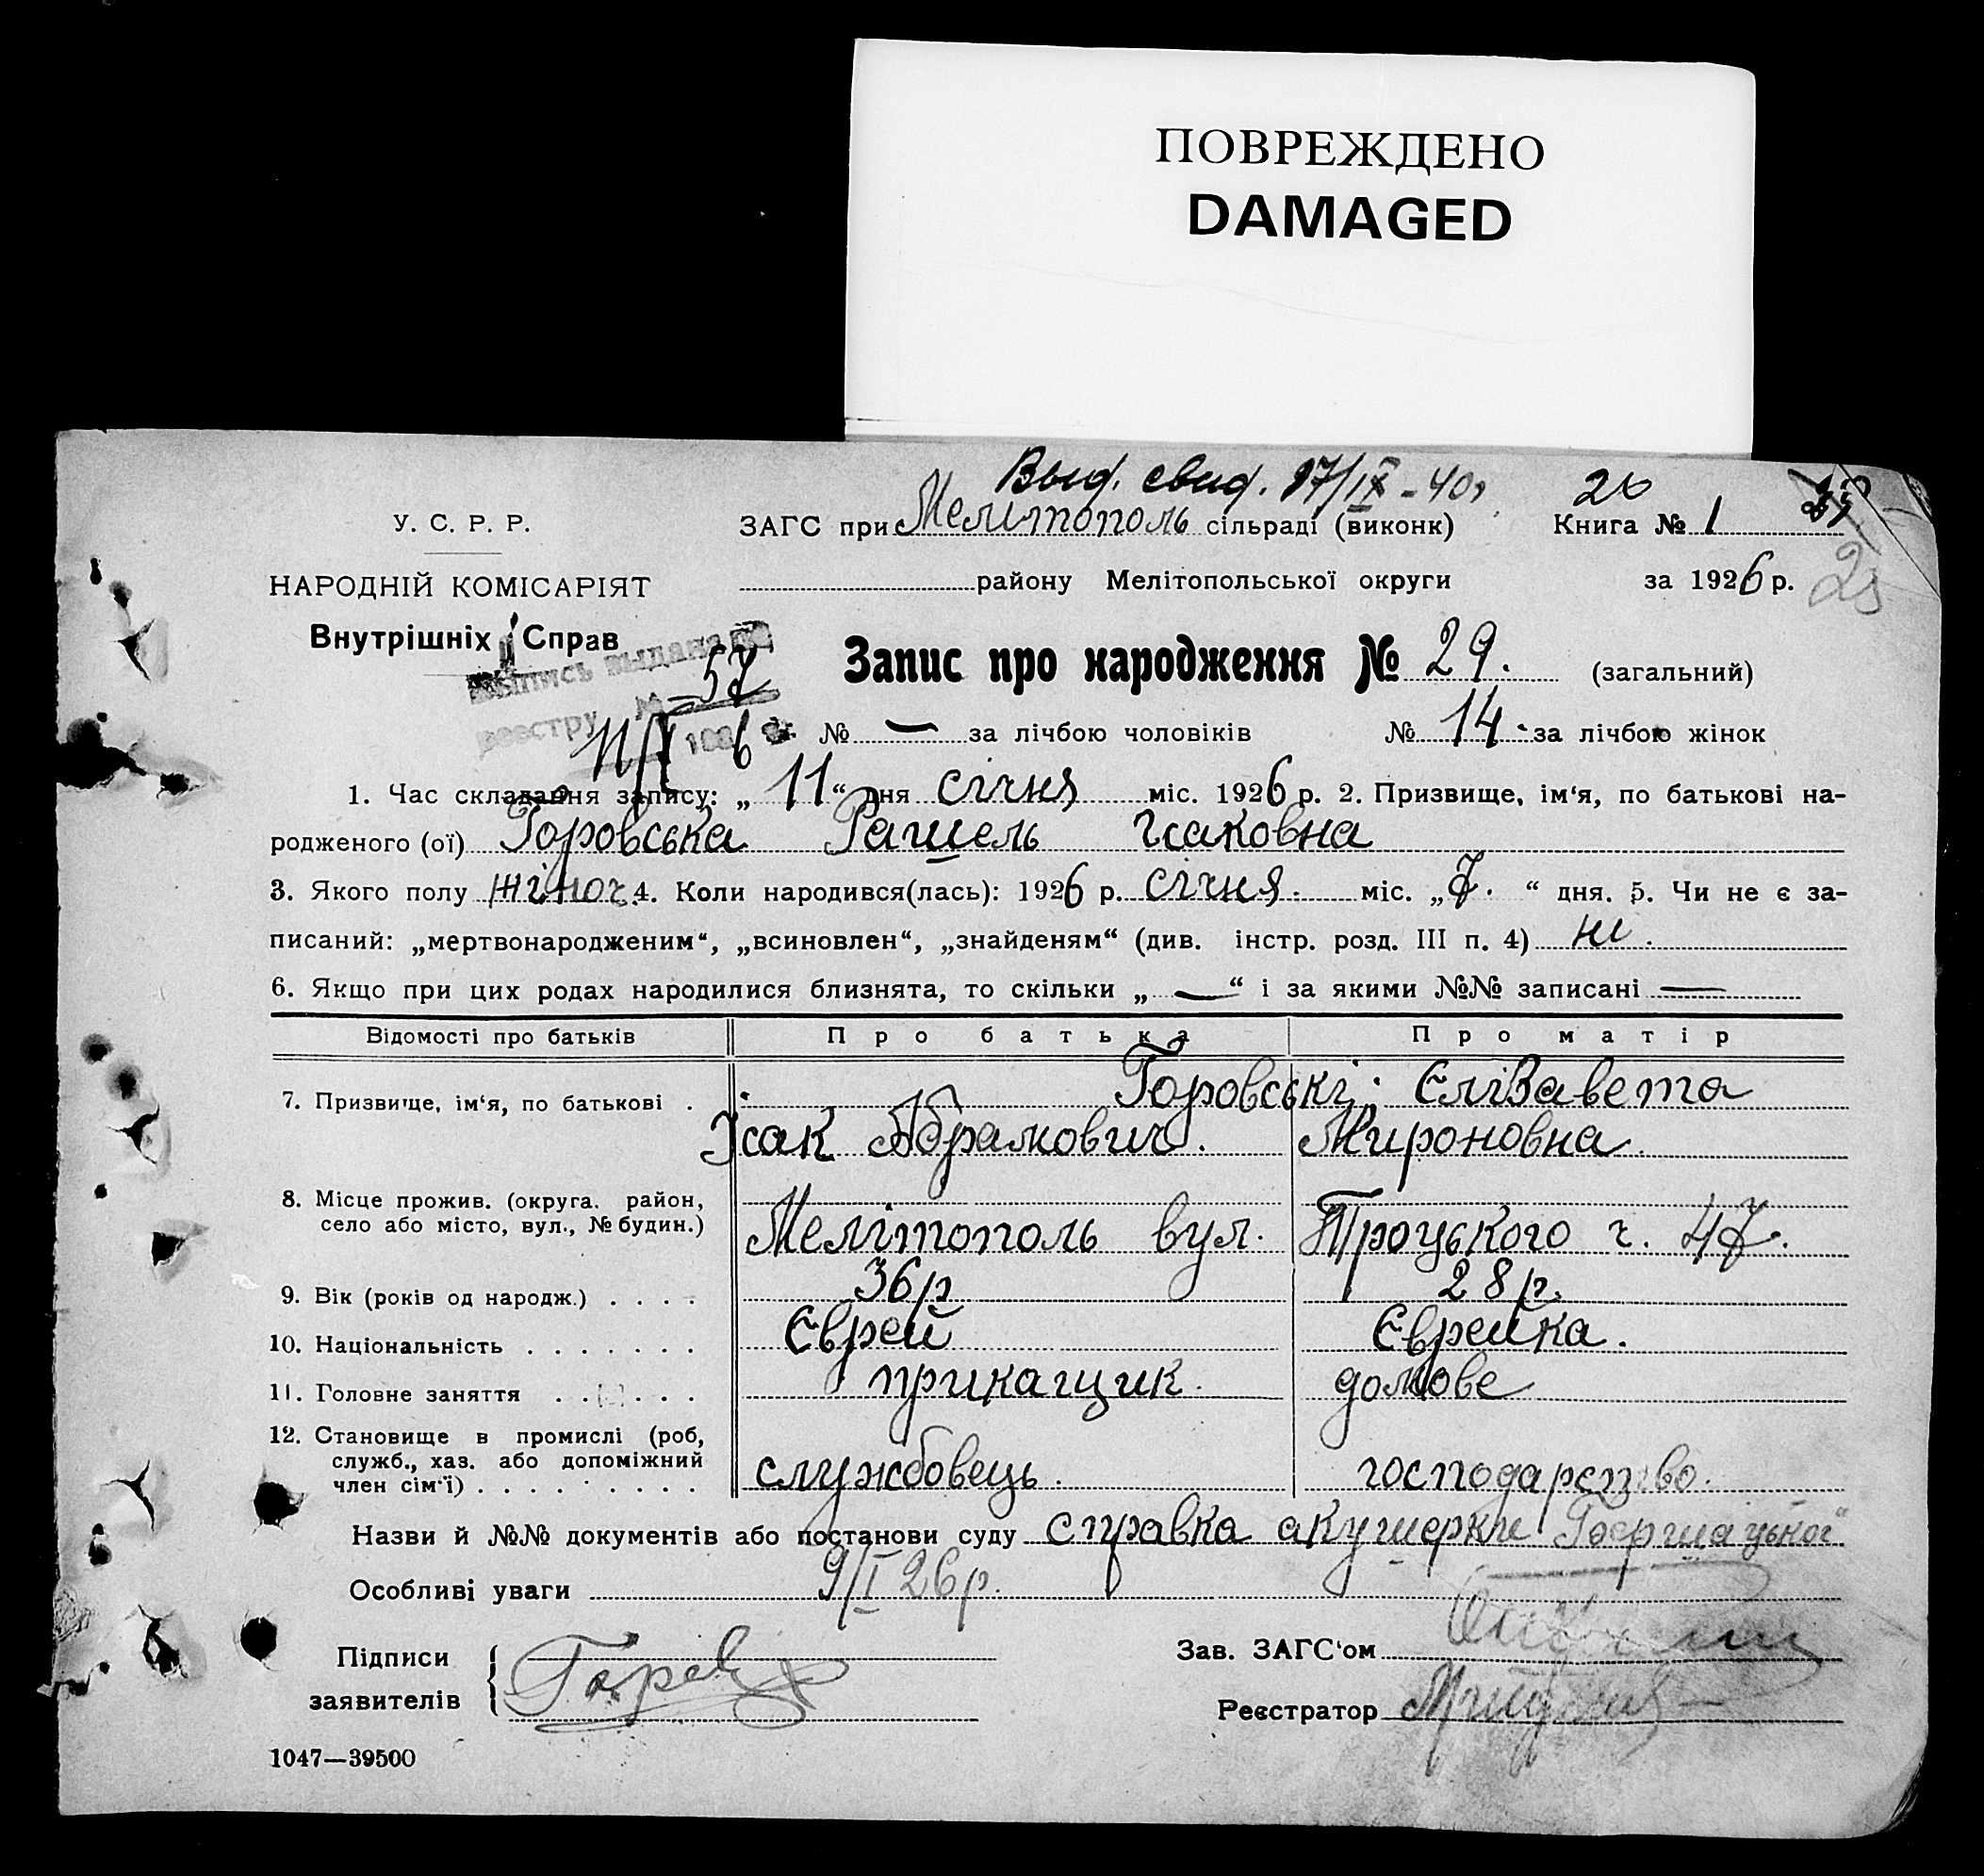 ПОВРЕЖДЕНО
DAMAGED
Выд. свид. 17/IX - 40г
26
У. С. Р. Р.
ЗАГС при Мелітополь сільраді (виконк)
Книга № 1
НАРОДНІЙ КОМІСАРІЯТ
району Мелітопольської округи
за 1926 р.
25
Внутрішніх Справ
выдана по
57
реестру №
Запис про народження № 29. (загальний)
11/X 6
№ — за лічбою чоловіків № 14. за лічбою жінок
1. Час складання запису: „ 11 “ дня січня міс. 1926 р. 2. Призвище, ім‘я, по батькові на-
родженого (ої) Горовська Рашель Ісаковна
3. Якого полу жіноч. 4. Коли народився(лась): 1926 р. січня. міс. „ 7. “ дня. 5. Чи не є за-
писаний: „мертвонародженим“, „всиновлен“, „знайденям“ (див. інстр. розд. III п. 4) ні.
6. Якщо при цих родах народилися близнята, то скільки „ — “ і за якими №№ записані —
Відомості про батьків
Про батька
Про матір
7. Призвище, ім‘я, по батькові .
Горовські: Єлізавета
Ісак Абрамович. Мироновна.
8. Місце прожив. (округа. район,
село або місто, вул., № будин.)
Мелітополь вул. Троцького ч. 47.
9. Вік (років од народж.) . . . .
36р
28р.
10. Національність . . . . . . .
Єврей
Єврейка.
11. Головне заняття . . . . . .
прикащик.
домове
12. Становище в промислі (роб,
служб., хаз. або допоміжний
член сім‘ї) . . . . . . . . .
службовець.
господарство.
Назви й №№ документів або постанови суду справка акушерки
9/I 26р.
Особливі уваги
Підписи
заявителів
Зав. ЗАГС‘ом
Реєстратор
1047—39500